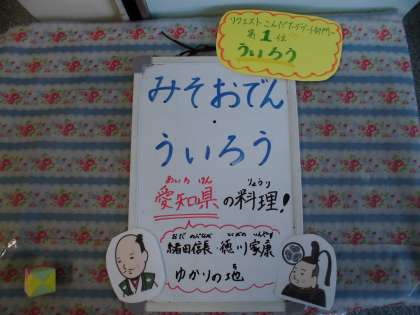 リクエスト こんだて デザート部門
第1位
ういろう
みそおでん
・
ういろう
あいち けん
愛知県の料理!
りょうり
おだ のぶなが とくがわ いえやす
織田信長・徳川家康
ゆかりの地
ち